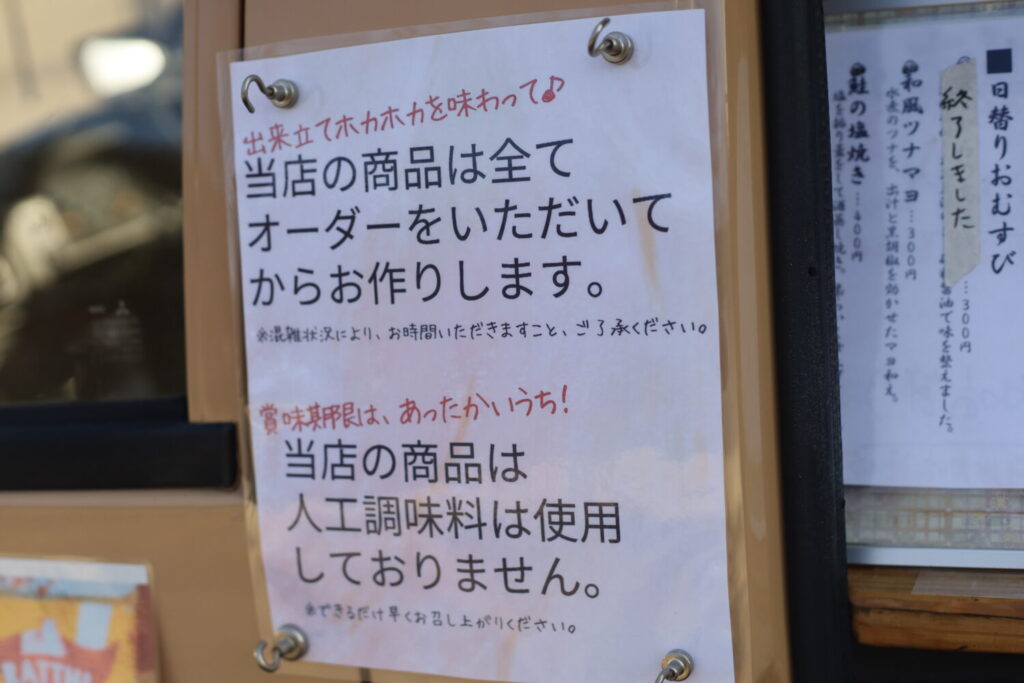 出来立てホカホカを味わって♪
当店の商品は全て
オーダーをいただいて
からお作りします。
※混雑状況により、お時間いただきますこと、ご了承ください。
賞味期限は、あったかいうち!
当店の商品は
人工調味料は使用
しておりません。
※できるだけ早くお召し上がりください。
■日替りおむすび
終了しました
…300円
油で味を整えました。
●和風ツナマヨ…300円
水煮のツナを、出汁と黒胡椒を効かせたマヨ和え。
●鮭の塩焼き…400円